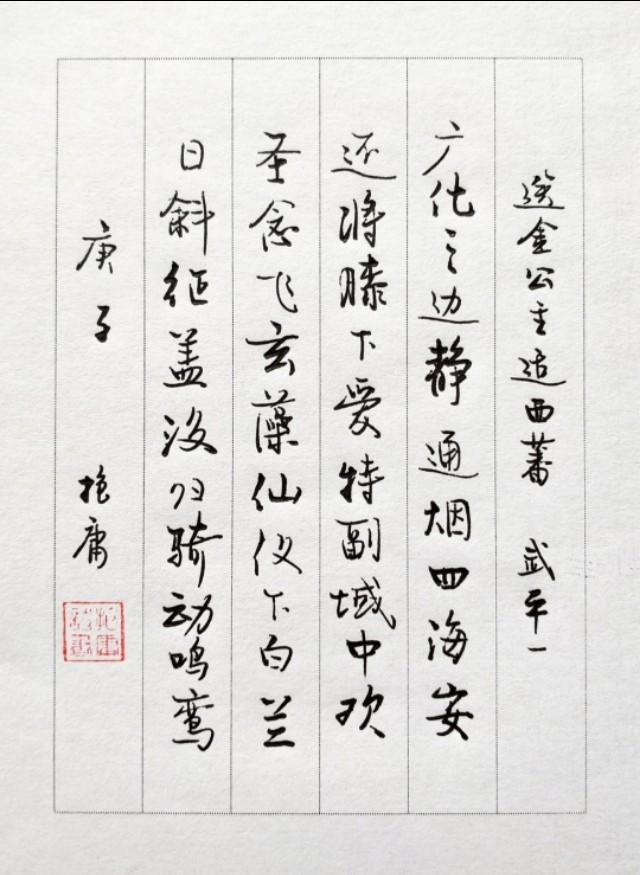 送金公主适西蕃 武平一
广化三边静通烟四海安
还将膝下爱特副域中欢
圣念飞玄藻仙仪下白兰
日斜征盖没归骑动鸣鸾
庚子 抱庸